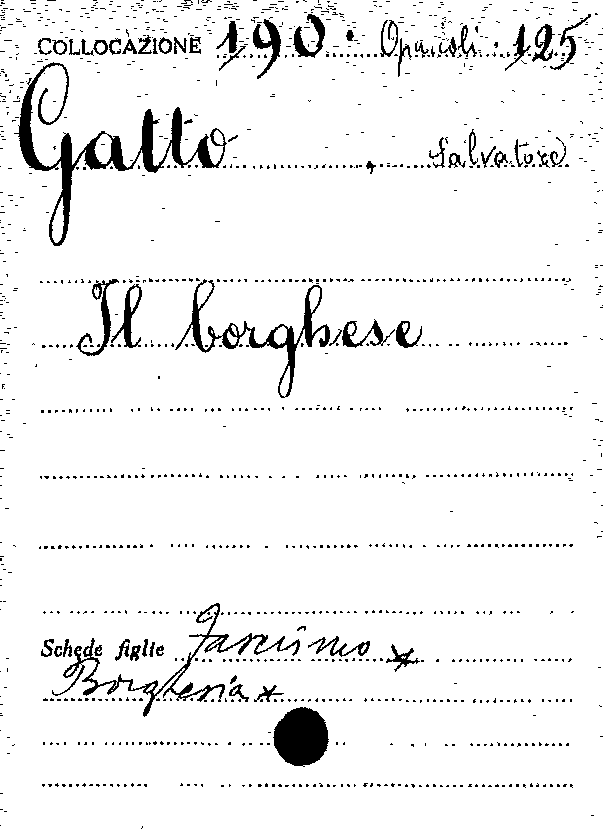 COLLOCAZIONE 190 · Opuscoli · 125
Gatto, Salvatore
Il borghese
Schede figlie Fascismo *
Borghesia *